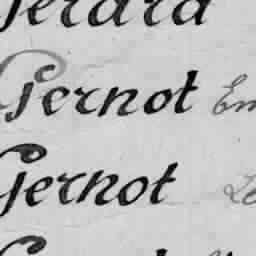 Perard
Pernot Em
Pernot